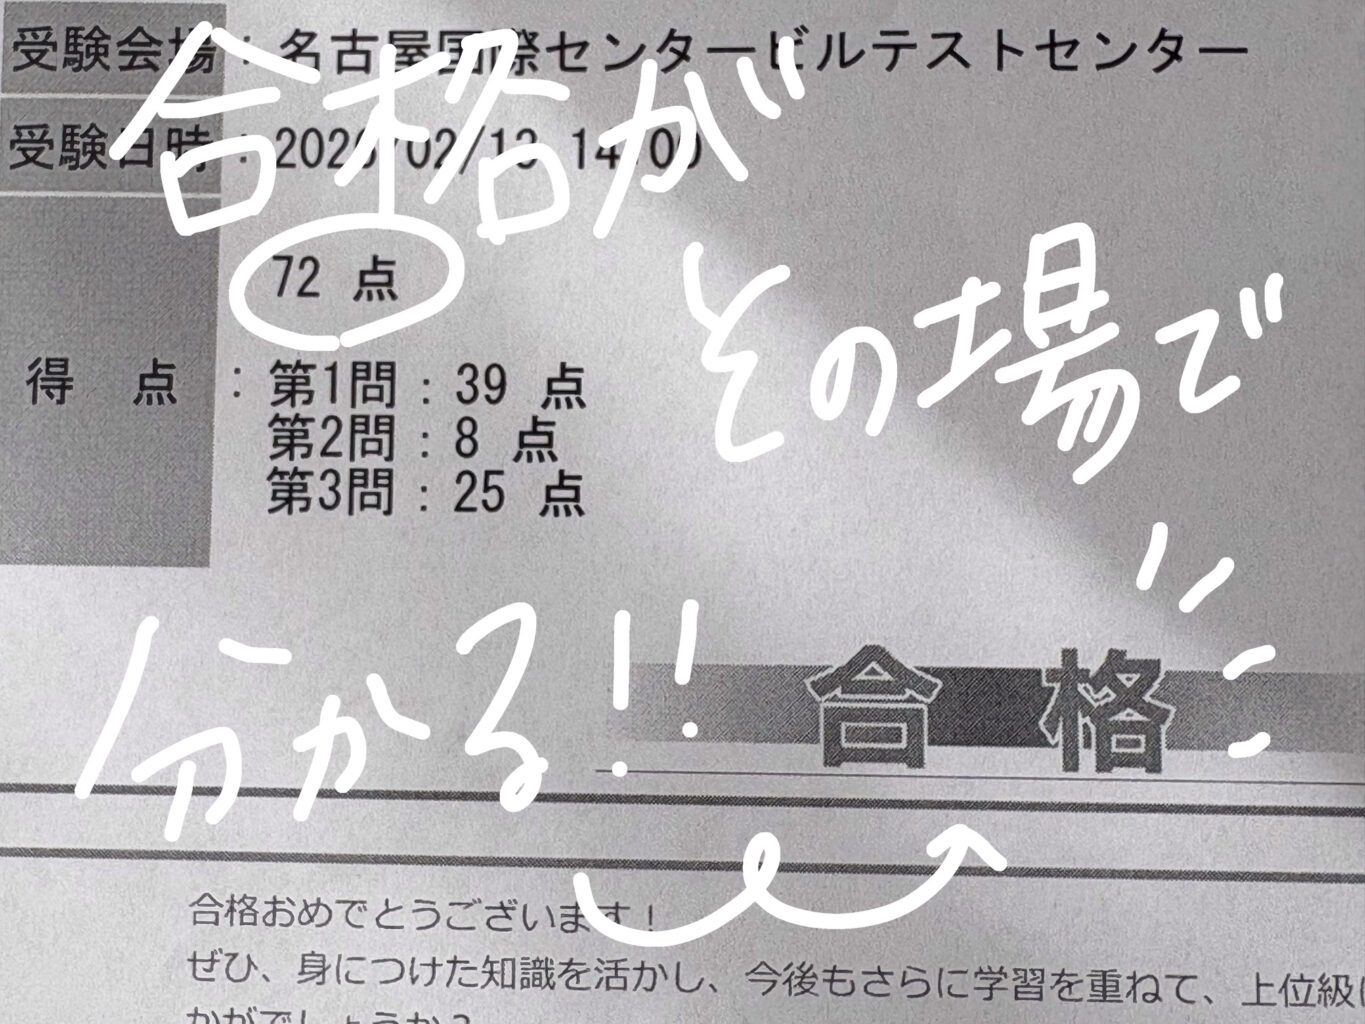 受験会場：名古屋国際センタービルテストセンター
受験日時：2026/02/13 14:00
合格が
その場で
分かる!!
得 点：
72 点
第1問：39 点
第2問：8 点
第3問：25 点
合 格
合格おめでとうございます！
ぜひ、身につけた知識を活かし、今後もさらに学習を重ねて、上位級に
かがでしょうか？